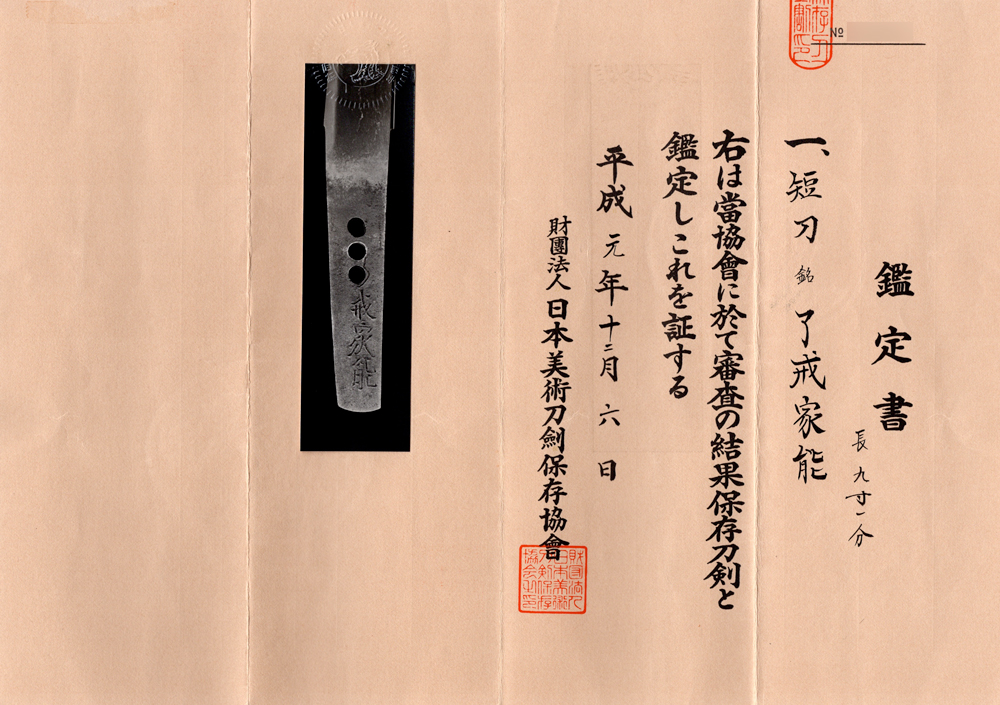 №
鑑定書
長九寸一分
一、短刀 銘 了戒家能
右は當協會に於て審査の結果保存刀剣と
鑑定しこれを証する
平成元年十二月六日
財團法人日本美術刀劍保存協會
財団法人
日本美術
刀剣保存
協会之印
戒家能